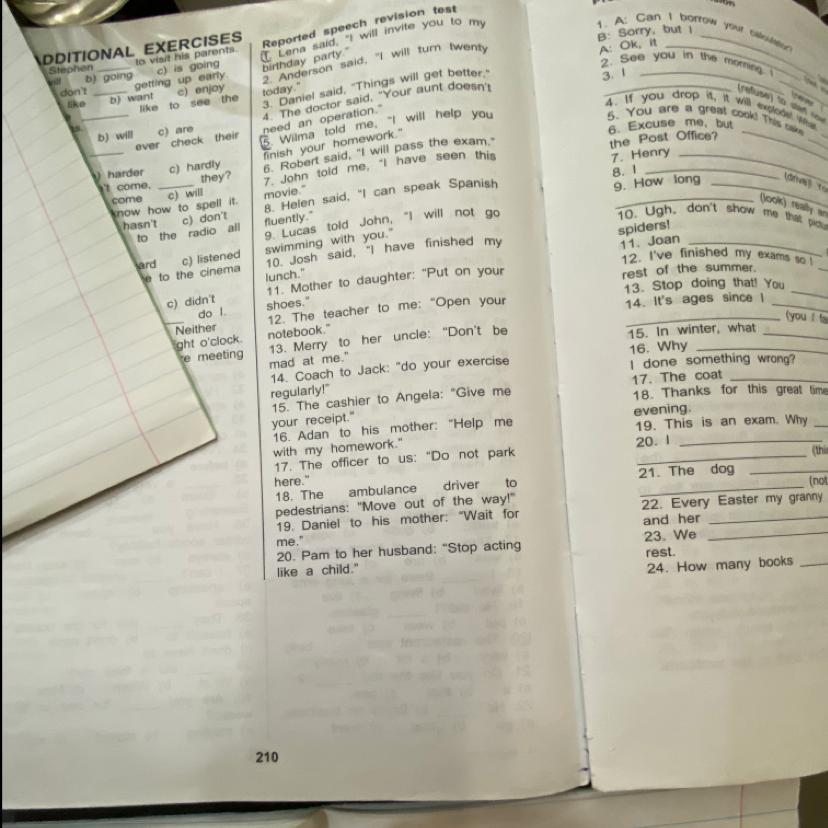 DDITIONAL EXERCISES
Stephen ______ to visit his parents.
b) going c) is going
don't ______ getting up early.
like b) want c) enjoy
______ like to see the
b) will c) are
______ ever check their
harder c) hardly
't come, ______ they?
come c) will
know how to spell it.
hasn't c) don't
to the radio all
ard c) listened
e to the cinema
c) didn't
______ do I.
Neither
ght o'clock.
e meeting
Reported speech revision test
1. Lena said, "I will invite you to my
birthday party."
2. Anderson said, "I will turn twenty
today."
3. Daniel said, "Things will get better."
4. The doctor said, "Your aunt doesn't
need an operation."
5. Wilma told me, "I will help you
finish your homework."
6. Robert said, "I will pass the exam."
7. John told me, "I have seen this
movie."
8. Helen said, "I can speak Spanish
fluently."
9. Lucas told John, "I will not go
swimming with you."
10. Josh said, "I have finished my
lunch."
11. Mother to daughter: "Put on your
shoes."
12. The teacher to me: "Open your
notebook."
13. Merry to her uncle: "Don't be
mad at me."
14. Coach to Jack: "do your exercise
regularly!"
15. The cashier to Angela: "Give me
your receipt."
16. Adan to his mother: "Help me
with my homework."
17. The officer to us: "Do not park
here."
18. The ambulance driver to
pedestrians: "Move out of the way!"
19. Daniel to his mother: "Wait for
me."
20. Pam to her husband: "Stop acting
like a child."
210
1. A: Can I borrow your calculator?
B: Sorry, but I ______
A: Ok, it ______
2. See you in the morning. I ______
3. I ______
(refuse) to start
4. If you drop it, it will explode! What
5. You are a great cook! This cake ______
6. Excuse me, but ______
the Post Office?
7. Henry ______
8. I ______ (drive)!
9. How long ______
______ (look) really
10. Ugh, don't show me that
spiders!
11. Joan ______
12. I've finished my exams so I ______
rest of the summer.
13. Stop doing that! You ______
14. It's ages since I ______
______ (you /
15. In winter, what ______
16. Why ______
I done something wrong?
17. The coat ______
18. Thanks for this great time
evening.
19. This is an exam. Why ______
20. I ______
______ (thi
21. The dog ______
______ (not
22. Every Easter my granny
and her ______
23. We ______
rest.
24. How many books ______